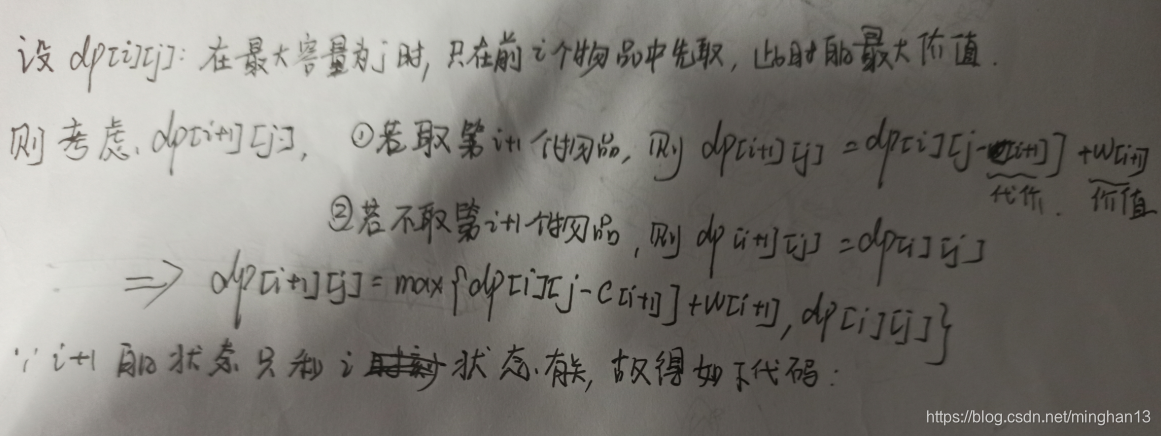 设 dp[i][j]: 在最大容量为j时, 只在前i个物品中先取, 此时的最大价值.
则考虑、dp[i+1][j], ①若取第i+1个物品, 则 dp[i+1][j] = dp[i][j-c[i+1]] + w[i+1]
代价. 价值
②若不取第i+1个物品, 则 dp[i+1][j] = dp[i][j]
=> dp[i+1][j] = max{dp[i][j-c[i+1]]+w[i+1], dp[i][j]}
∵ i+1 的状态只和 i 状态有关, 故得如下代码:
https://blog.csdn.net/minghan13